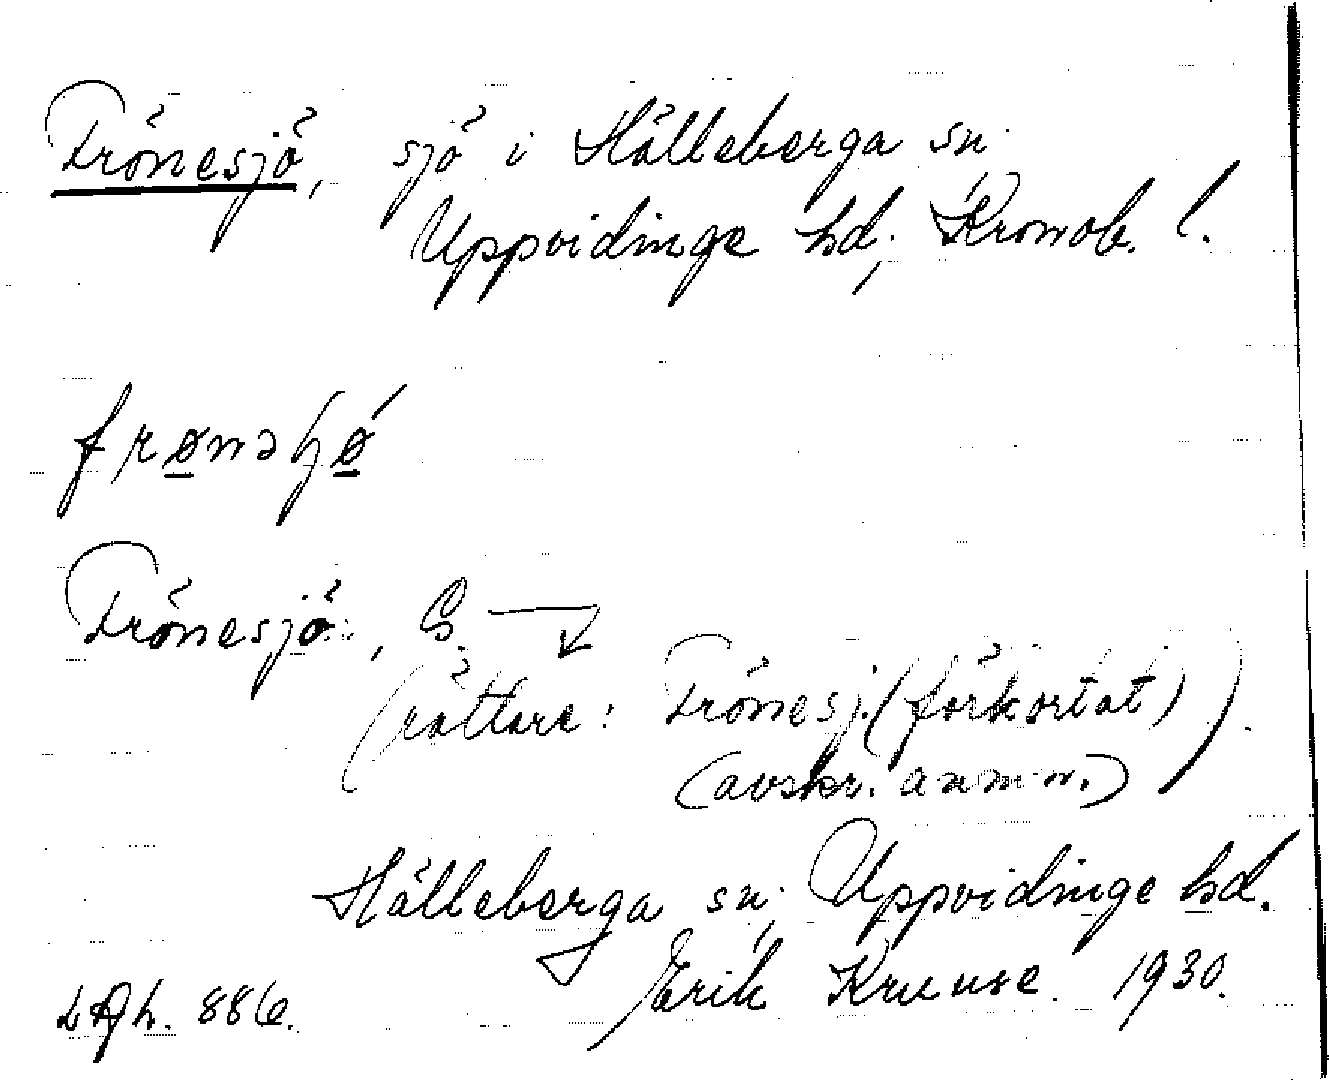 Trönesjö, sjö i Hälleberga sn
Uppvidinge hd, Kronob. l.
Trönesjö, S.
(rättare: Trönesj. (förkortat)).
(avskr. anm.)
Hälleberga sn, Uppvidinge hd.
Erik Kruuse 1930.
886.